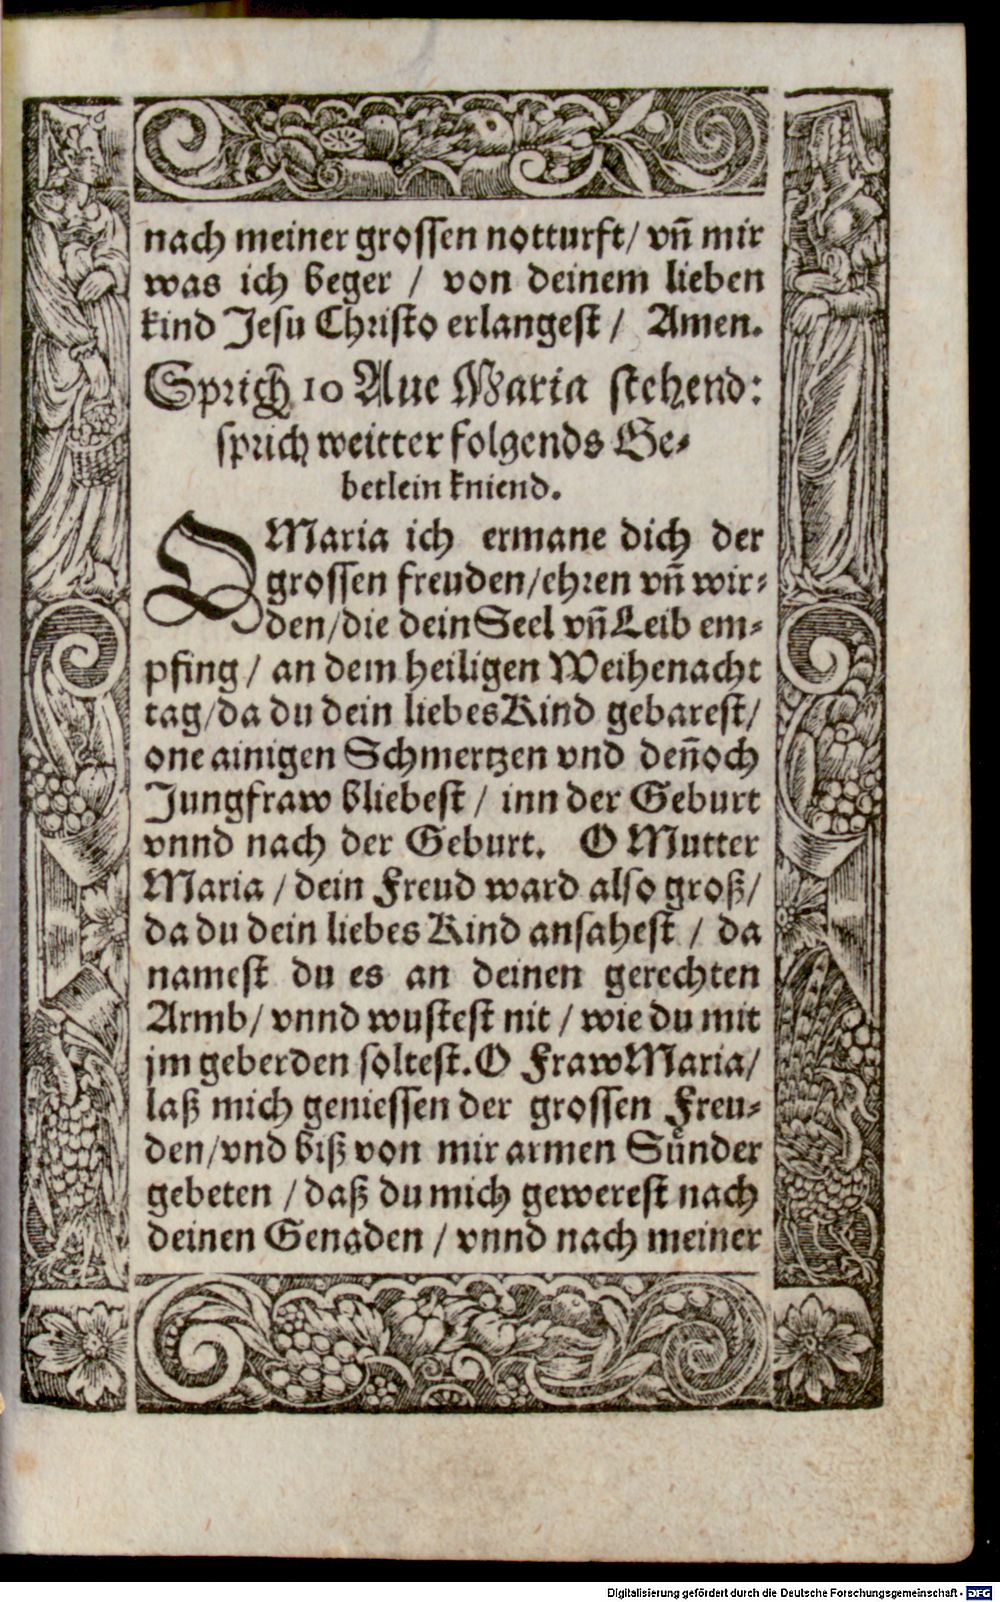 nach meiner grossen notturft/ vn̄ mir
was ich beger / von deinem lieben
kind Jesu Christo erlangest / Amen.
Sprich 10 Aue Maria stehend:
sprich weitter folgends Ge⸗
betlein kniend.
O Maria ich ermane dich der
grossen freuden/ehren vn̄ wir⸗
den/die dein Seel vn̄ Leib em⸗
pfing/ an dem heiligen Weihenacht
tag/da du dein liebes Kind gebarest/
one ainigen Schmertzen vnd den̄och
Jungfraw bliebest / inn der Geburt
vnnd nach der Geburt. O Mutter
Maria / dein Freud ward also groß/
da du dein liebes Kind ansahest / da
namest du es an deinen gerechten
Armb/ vnnd wustest nit / wie du mit
jm geberden soltest. O Fraw Maria/
laß mich geniessen der grossen Freu⸗
den/vnd biß von mir armen Sůnder
gebeten / daß du mich gewerest nach
deinen Genaden / vnnd nach meiner
Digitalisierung gefördert durch die Deutsche Forschungsgemeinschaft - DFG